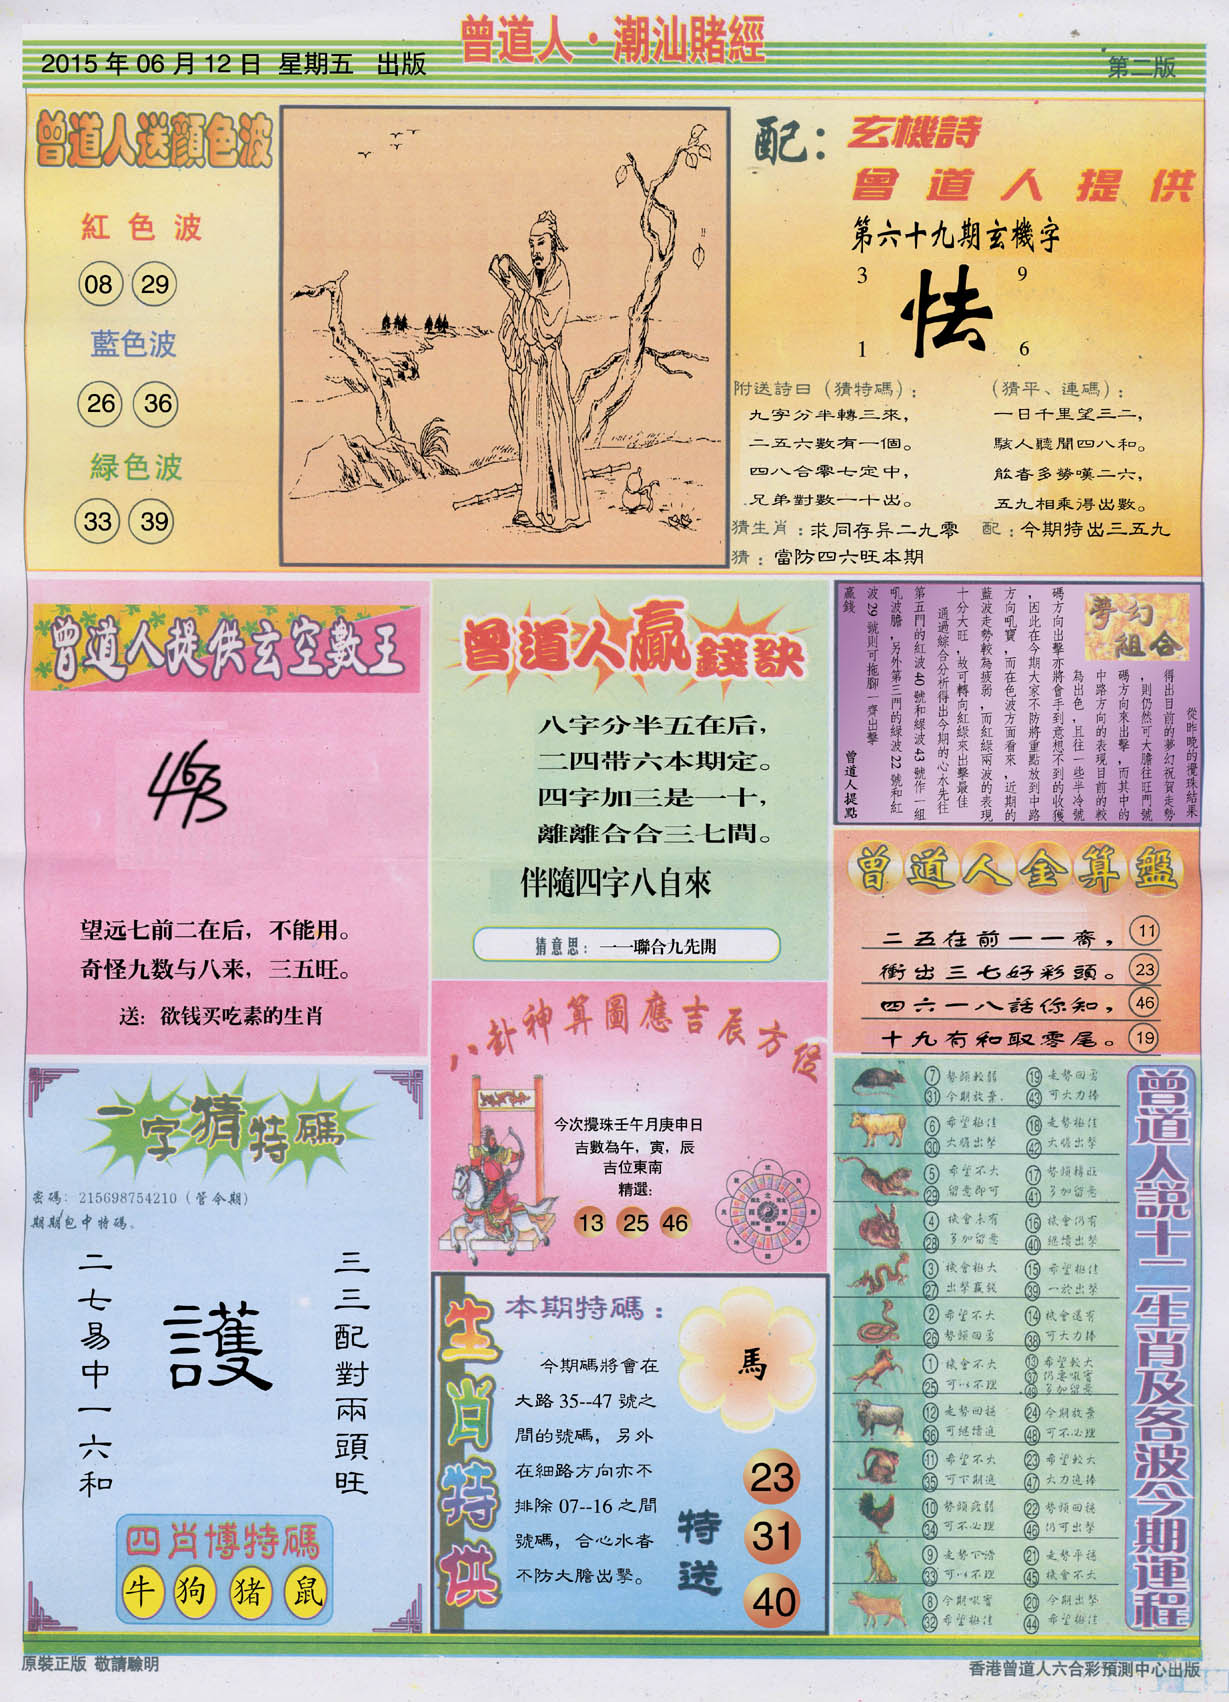 曾道人·潮汕賭經
2015 年 06 月 12 日 星期五 出版
第二版
曾道人送顏色波
紅色波
08 29
藍色波
26 36
緑色波
33 39
配：玄機詩
曾道人提供
第六十九期玄機字
3 9
怯
1 6
附送詩曰（猜特碼）：
九字分半轉三來，
二五六數有一個。
四八合零七定中，
兄弟對數一十出。
（猜平、連碼）：
一日千里望三二，
駭人聽聞四八和。
能者多勞嘆二六，
五九相乘得出數。
猜生肖：求同存异二九零 配：今期特出三五九
猜：當防四六旺本期
曾道人提供玄空數王
463
望远七前二在后，不能用。
奇怪九数与八来，三五旺。
送：欲钱买吃素的生肖
曾道人贏錢訣
八字分半五在后，
二四带六本期定。
四字加三是一十，
離離合合三七間。
伴隨四字八自來
猜意思：一一聯合九先開
夢幻組合
從昨晚的攪珠結果
得出目前的夢幻祝賀走勢
，則仍然可大膽往旺門號
碼方向來出擊，而其中的
中路方向的表現目前的較
為出色，且往一些半冷號
碼方向出擊亦將會手到意想不到的收獲
，因此在今期大家不防將重點放到中路
方向吼寶，而在色波方面看來，近期的
藍波走勢較為疲弱，而紅綠兩波的表現
十分大旺，故可轉向紅綠來出擊最佳
通過綜合分析得出今期的心水先往
第五門的紅波 40 號和緑波 43 號作一組
吼波膽，另外第三門的綠波 22 號和紅
波 29 號則可拖腳一齊出擊
贏錢 曾道人提點
曾道人金算盤
二五在前一一齋， 11
衝出三七好彩頭。 23
四六一八話你知， 46
十九有和取零尾。 19
八卦神算圖應吉辰方位
今次攪珠壬午月庚申日
吉數為午，寅，辰
吉位東南
精選：
13 25 46
一字猜特碼
密碼：215698754210（管令期）
期期包中特碼。
二七易中一六和
護
三三配對兩頭旺
四肖博特碼
牛 狗 猪 鼠
生肖特供
本期特碼：
今期碼將會在
大路 35--47 號之
間的號碼，另外
在細路方向亦不
排除 07--16 之間
號碼，合心水者
不防大膽出擊。
馬
特送
23
31
40
曾道人説十二生肖及各波今期運程
7 勢頭較弱 19 走勢回勇
31 今期放棄 43 可大力捧
6 希望極佳 18 走勢極佳
30 大膽出擊 42 大膽出擊
5 希望不大 17 勢頭轉旺
29 留意即可 41 多加留意
4 機會未有 16 機會仍有
28 多加留意 40 繼續出擊
3 機會極大 15 希望極佳
27 出擊贏錢 39 一於出擊
2 希望不大 14 機會還有
26 勢頭回勇 38 可大力捧
1 機會不大 13 希望較大
25 可以不理 37 仍要吼實
49 多加留意
12 走勢回穩 24 今期放棄
36 可繼續追 48 可不必理
11 希望不大 23 希望較大
35 可下期追 47 大力追捧
10 勢頭疲弱 22 勢頭回穩
34 可不必理 46 仍可出擊
9 走勢下滑 21 走勢平穩
33 可以不理 45 機會不大
8 今期吼實 20 今期出擊
32 希望極佳 44 希望極佳
原裝正版 敬請驗明
香港曾道人六合彩預測中心出版